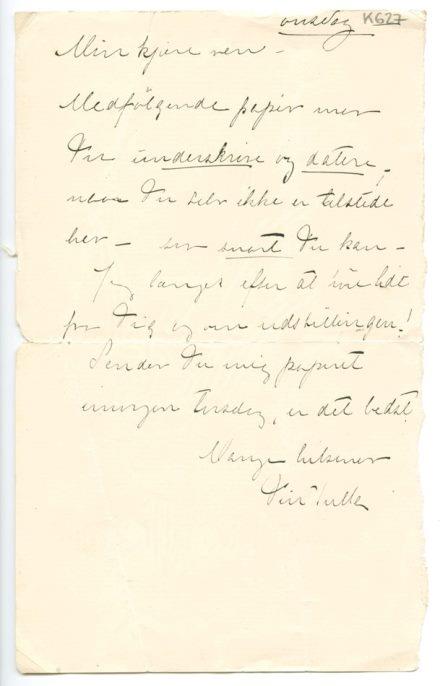 onsdag K627
Min kjære ven –
Medfølgende papir maa
Du underskrive og datere,
naar Du selv ikke er tilstede
her – saa snart Du kan –
Jeg længes efter at høre lidt
fra Dig og om udstillingen!
Sender Du mig papiret
imorgen torsdag, er det bedst!
Mange hilsener
Din